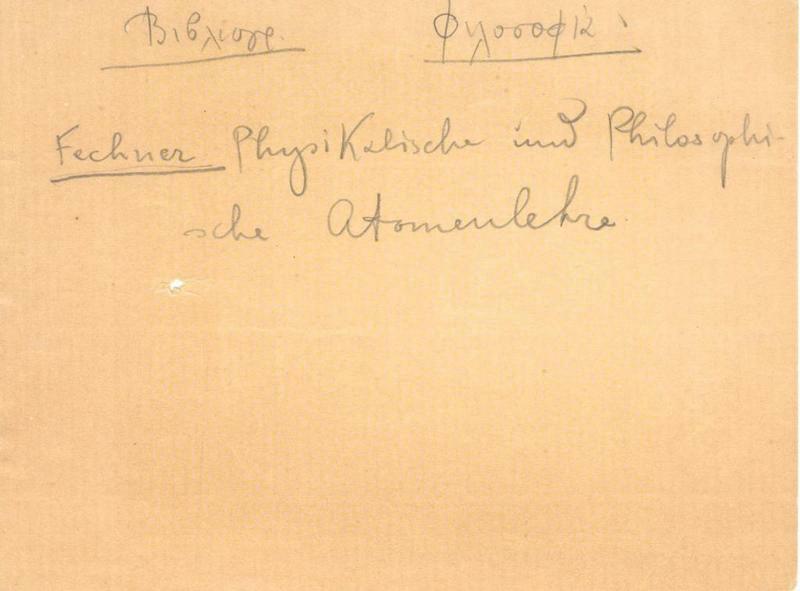 Βιβλιογρ. Φιλοσοφικ.
Fechner Physikalische und Philosophi-
sche Atomenlehre